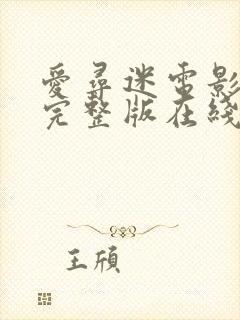 愛尋迷電影
完整版在綫
王頎